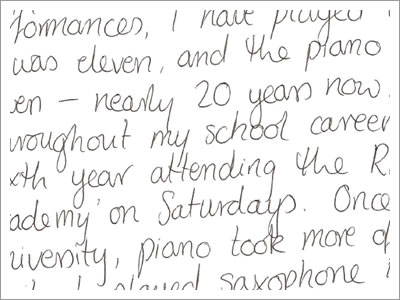 formances, I have played
was eleven, and the piano
en – nearly 20 years now.
roughout my school career
xth year attending the R
ademy on Saturdays. Once
iversity, piano took more of
I played saxophone